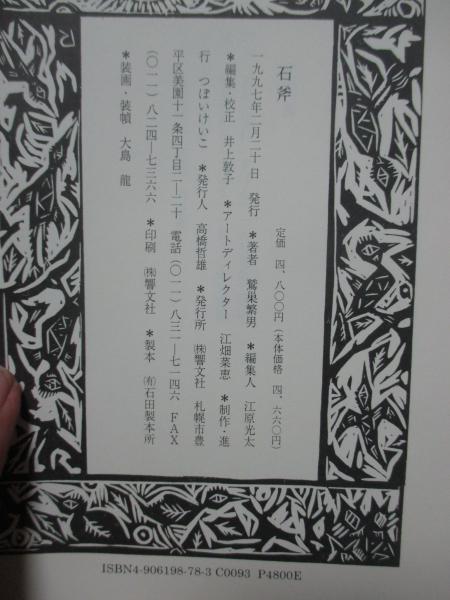 石斧
定価 四、八〇〇円(本体価格 四、六六〇円)
一九九七年二月二十日 発行 *著者 鷲巣繁男 *編集人 江原光太
*編集・校正 井上敦子 *アートディレクター 江畑菜恵 *制作・進
行 つぼいけいこ *発行人 高橋哲雄 *発行所 ㈱響文社 札幌市豊
平区美園十一条四丁目二―二十 電話(〇一一)八三一―七一四六 FAX
(〇一一)八二四―七三六六 *印刷 ㈱響文社 *製本 ㈲石田製本所
*装画・装幀 大島 龍
ISBN4-906198-78-3 C0093 P4800E